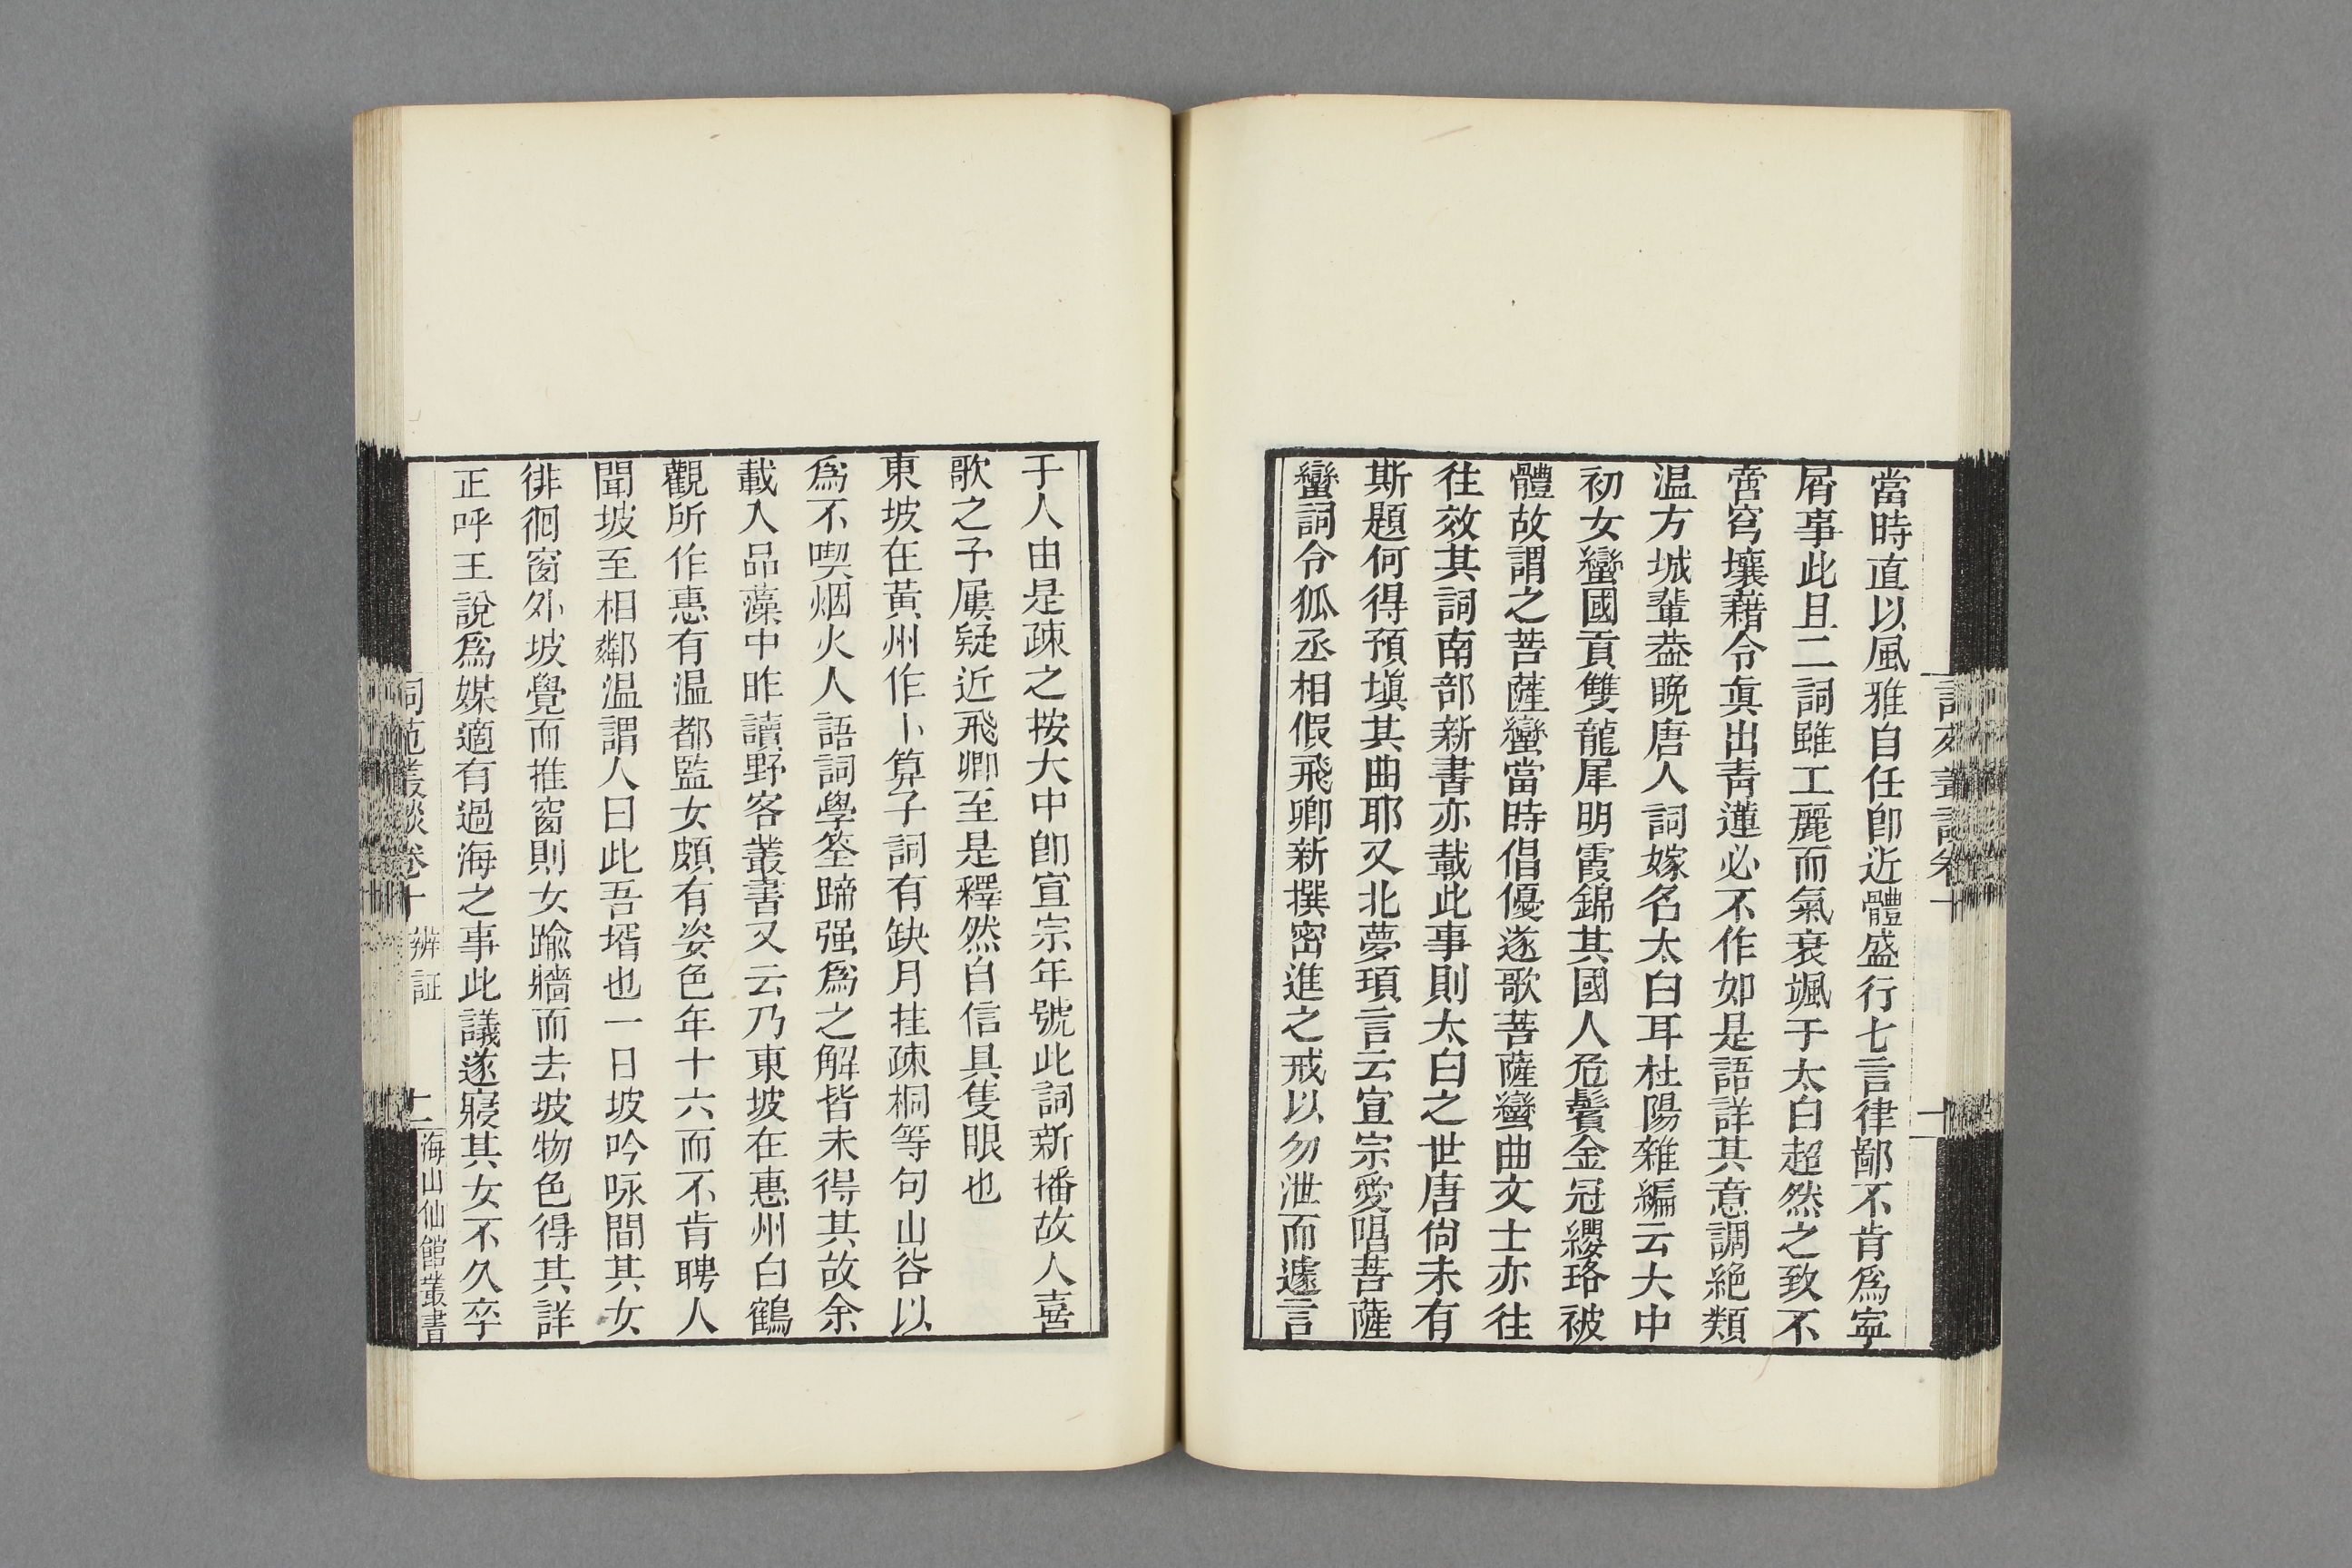 詞苑叢談卷十
十
當時直以風雅自任卽近體盛行七言律鄙不肯爲寧
屑事此且二詞雖工麗而氣衰颯于太白超然之致不
啻穹壤藉令眞出靑蓮必不作如是語詳其意調絕類
温方城輩葢晚唐人詞嫁名太白耳杜陽雜編云大中
初女蠻國貢雙龍犀明霞錦其國人危鬢金冠纓珞被
體故謂之菩薩蠻當時倡優遂歌菩薩蠻曲文士亦往
往效其詞南部新書亦載此事則太白之世唐尙未有
斯題何得預塡其曲耶又北夢瑣言云宣宗愛唱菩薩
蠻詞令狐丞相假飛卿新撰密進之戒以勿泄而遽言
于人由是疎之按大中卽宣宗年號此詞新播故人喜
歌之予屢疑近飛卿至是釋然自信具隻眼也
東坡在黃州作卜算子詞有缺月挂疎桐等句山谷以
爲不喫烟火人語詞學筌蹄强爲之解皆未得其故余
載入品藻中昨讀野客叢書又云乃東坡在惠州白鶴
觀所作惠有温都監女頗有姿色年十六而不肯聘人
聞坡至相鄰温謂人曰此吾壻也一日坡吟咏間其女
徘徊窗外坡覺而推窗則女踰牆而去坡物色得其詳
正呼王說爲媒適有過海之事此議遂寢其女不久卒
詞苑叢談卷十 辨証
十一
海山仙館叢書